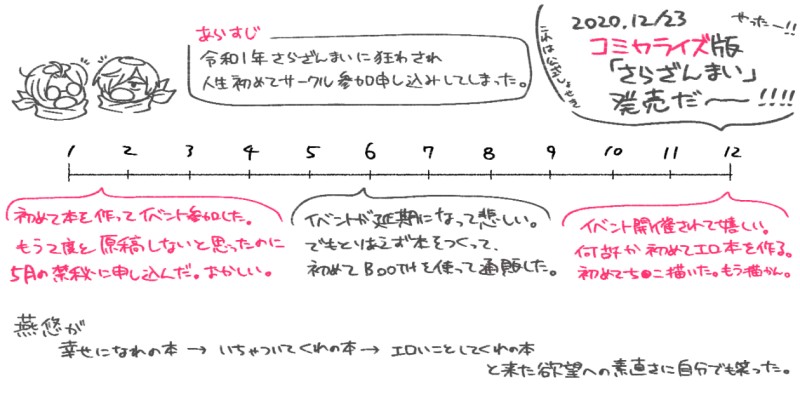 あらすじ
令和1年さらざんまいに狂わされ
人生初めてサークル参加申し込みしてしまった。
2020.12/23
やったー!!
コミカライズ版
「さらざんまい」
発売だ〜〜!!!!
1 2 3 4 5 6 7 8 9 10 11 12
初めて本を作ってイベント参加した。
もう2度と原稿しないと思ったのに
5月の菜秘に申し込んだ。おかしい。
イベントが延期になって悲しい。
でもとりあえず本をつくって、
初めてBOOTHを使って通販した。
イベント開催されて嬉しい。
何故か初めてエロ本を作る。
初めてち●こ描いた。もう描かん。
燕悠が
幸せになれの本 → いちゃついてくれの本 → エロいことしてくれの本
と来た欲望への素直さに自分でも笑った。